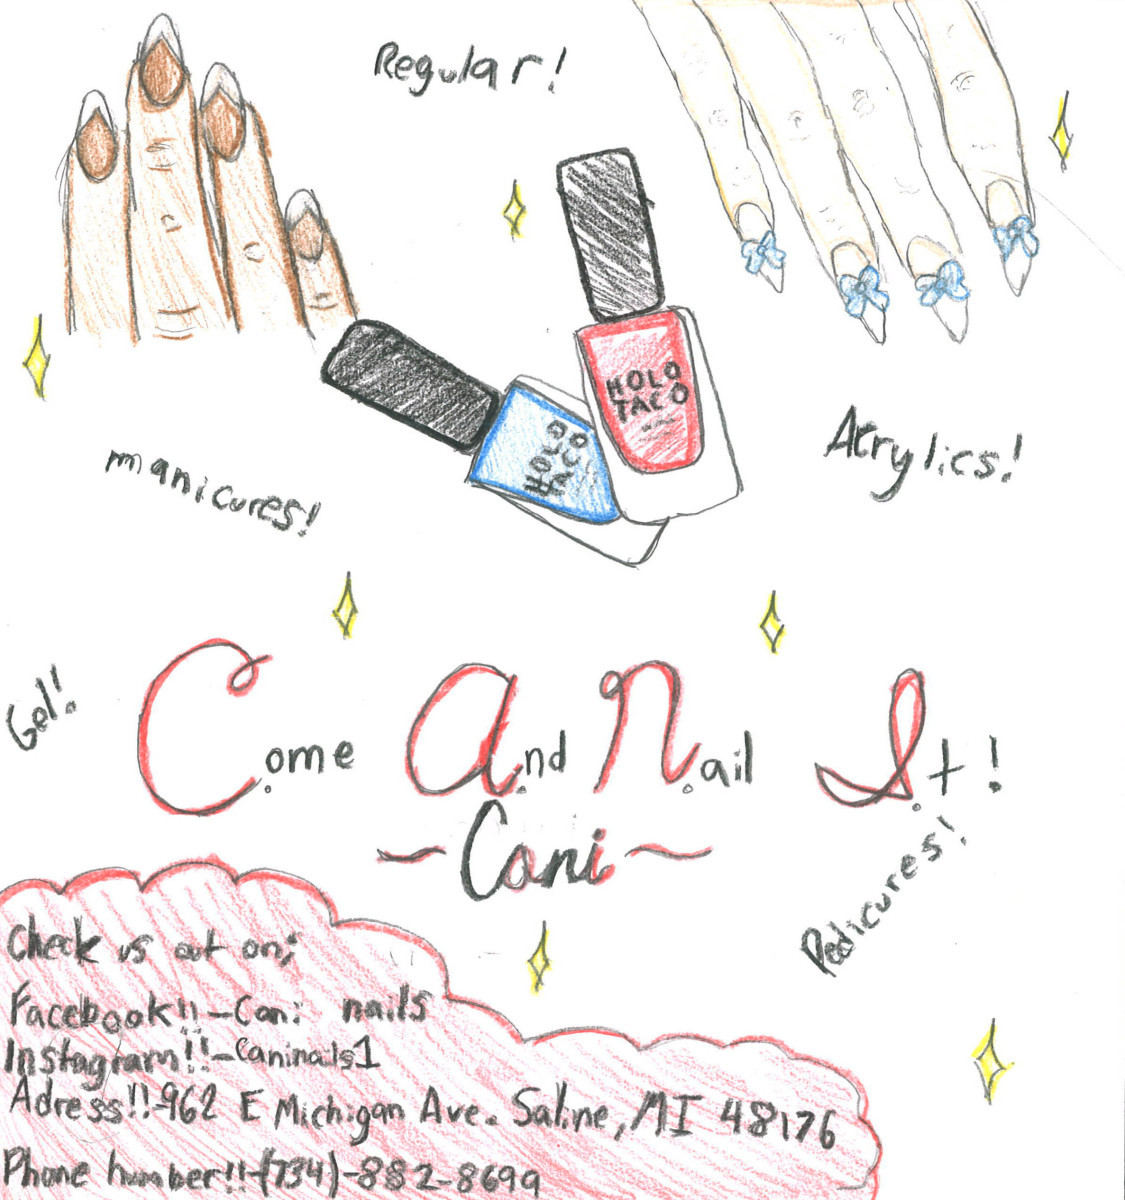 Regular!
HOLO
TACO
HOLO
TACO
manicures!
Acrylics!
Gel!
Come And Nail It!
~Cani~
Pedicures!
Check us out on;
Facebook!!-Cani nails
Instagram!!-Caninails1
Adress!!-962 E Michigan Ave. Saline, MI 48176
Phone number!!-(734)-882-8699